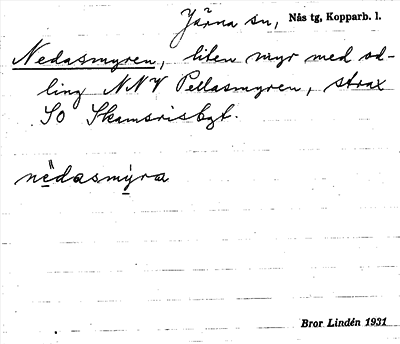 Järna sn, Nås tg, Kopparb. l.
Nedasmyren, liten myr med od-
ling NNV Pellasmyren, strax
SO Skamsrisbgt.
nèdasmýra
Bror Lindén 1931